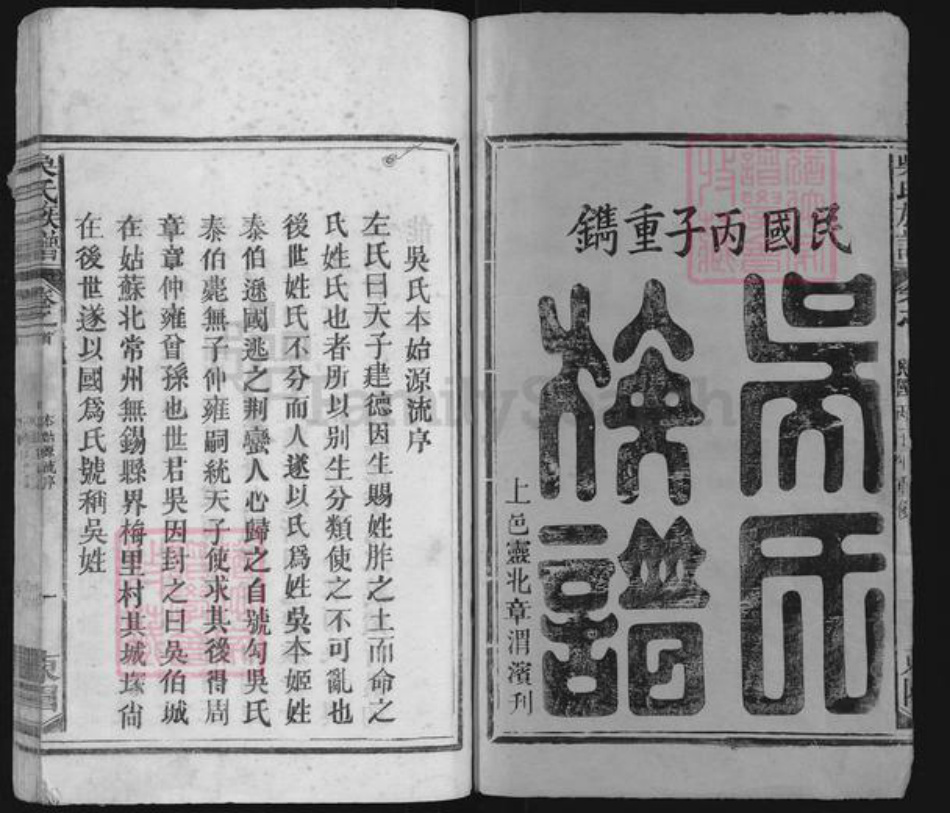 民國丙子重鐫
吳氏
族譜
上邑靈北章渭濱刋
吳氏本始源流序
左氏曰天子建德因生賜姓胙之土而命之
氏姓氏也者所以别生分類使之不可亂也
後世姓氏不分而人遂以氏爲姓吳本姬姓
泰伯遜國逃之荆蠻人心歸之自號勾吳氏
泰伯薨無子仲雍嗣統天子使求其後得周
章章仲雍曾孫也世君吳因封之曰吳伯城
在姑蘇北常州無錫縣界梅里村其城塚尙
在後世遂以國爲氏號稱吳姓
吳氏族譜
一